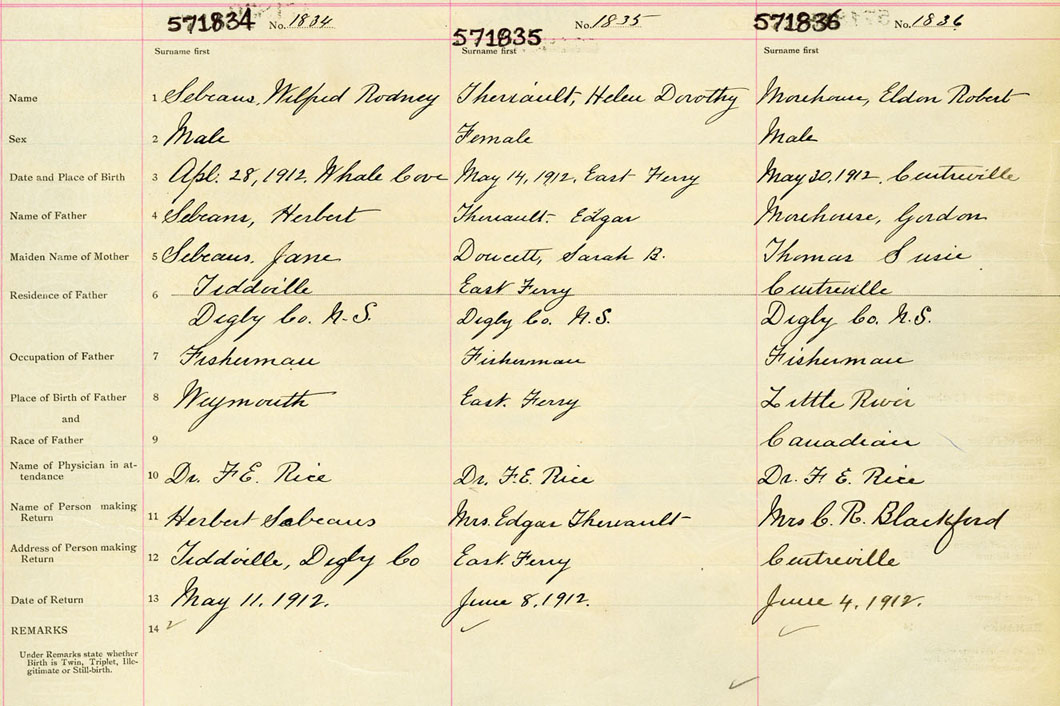 571834 No. 1834 571835 No. 1835 571836 No. 1836
Surname first Surname first Surname first
Name 1 Sebeans, Wilfred Rodney Theriault, Helen Dorothy Morehouse, Eldon Robert
Sex 2 Male Female Male
Date and Place of Birth 3 Apl. 28, 1912. Whale Cove May 14, 1912. East Ferry May 30, 1912. Centreville
Name of Father 4 Sebeans, Herbert Theriault- Edgar Morehouse, Gordon
Maiden Name of Mother 5 Sebeans, Jane Doucett, Sarah B. Thomas Susie
Residence of Father 6 Tiddville East Ferry Centreville
Digby Co. N.S. Digby Co. N.S. Digby Co. N.S.
Occupation of Father 7 Fisherman Fisherman Fisherman
Place of Birth of Father 8 Weymouth East Ferry Little River
and
Race of Father 9 Canadian
Name of Physician in at-
tendance 10 Dr. F.E. Rice Dr. F.E. Rice Dr. F. E. Rice
Name of Person making
Return 11 Herbert Sabeans Mrs. Edgar Theriault Mrs C. R. Blackford
Address of Person making
Return 12 Tiddville, Digby Co East Ferry Centreville
Date of Return 13 May 11. 1912. June 8, 1912. June 4, 1912.
REMARKS 14
Under Remarks state whether
Birth is Twin, Triplet, Ille-
gitimate or Still-birth.